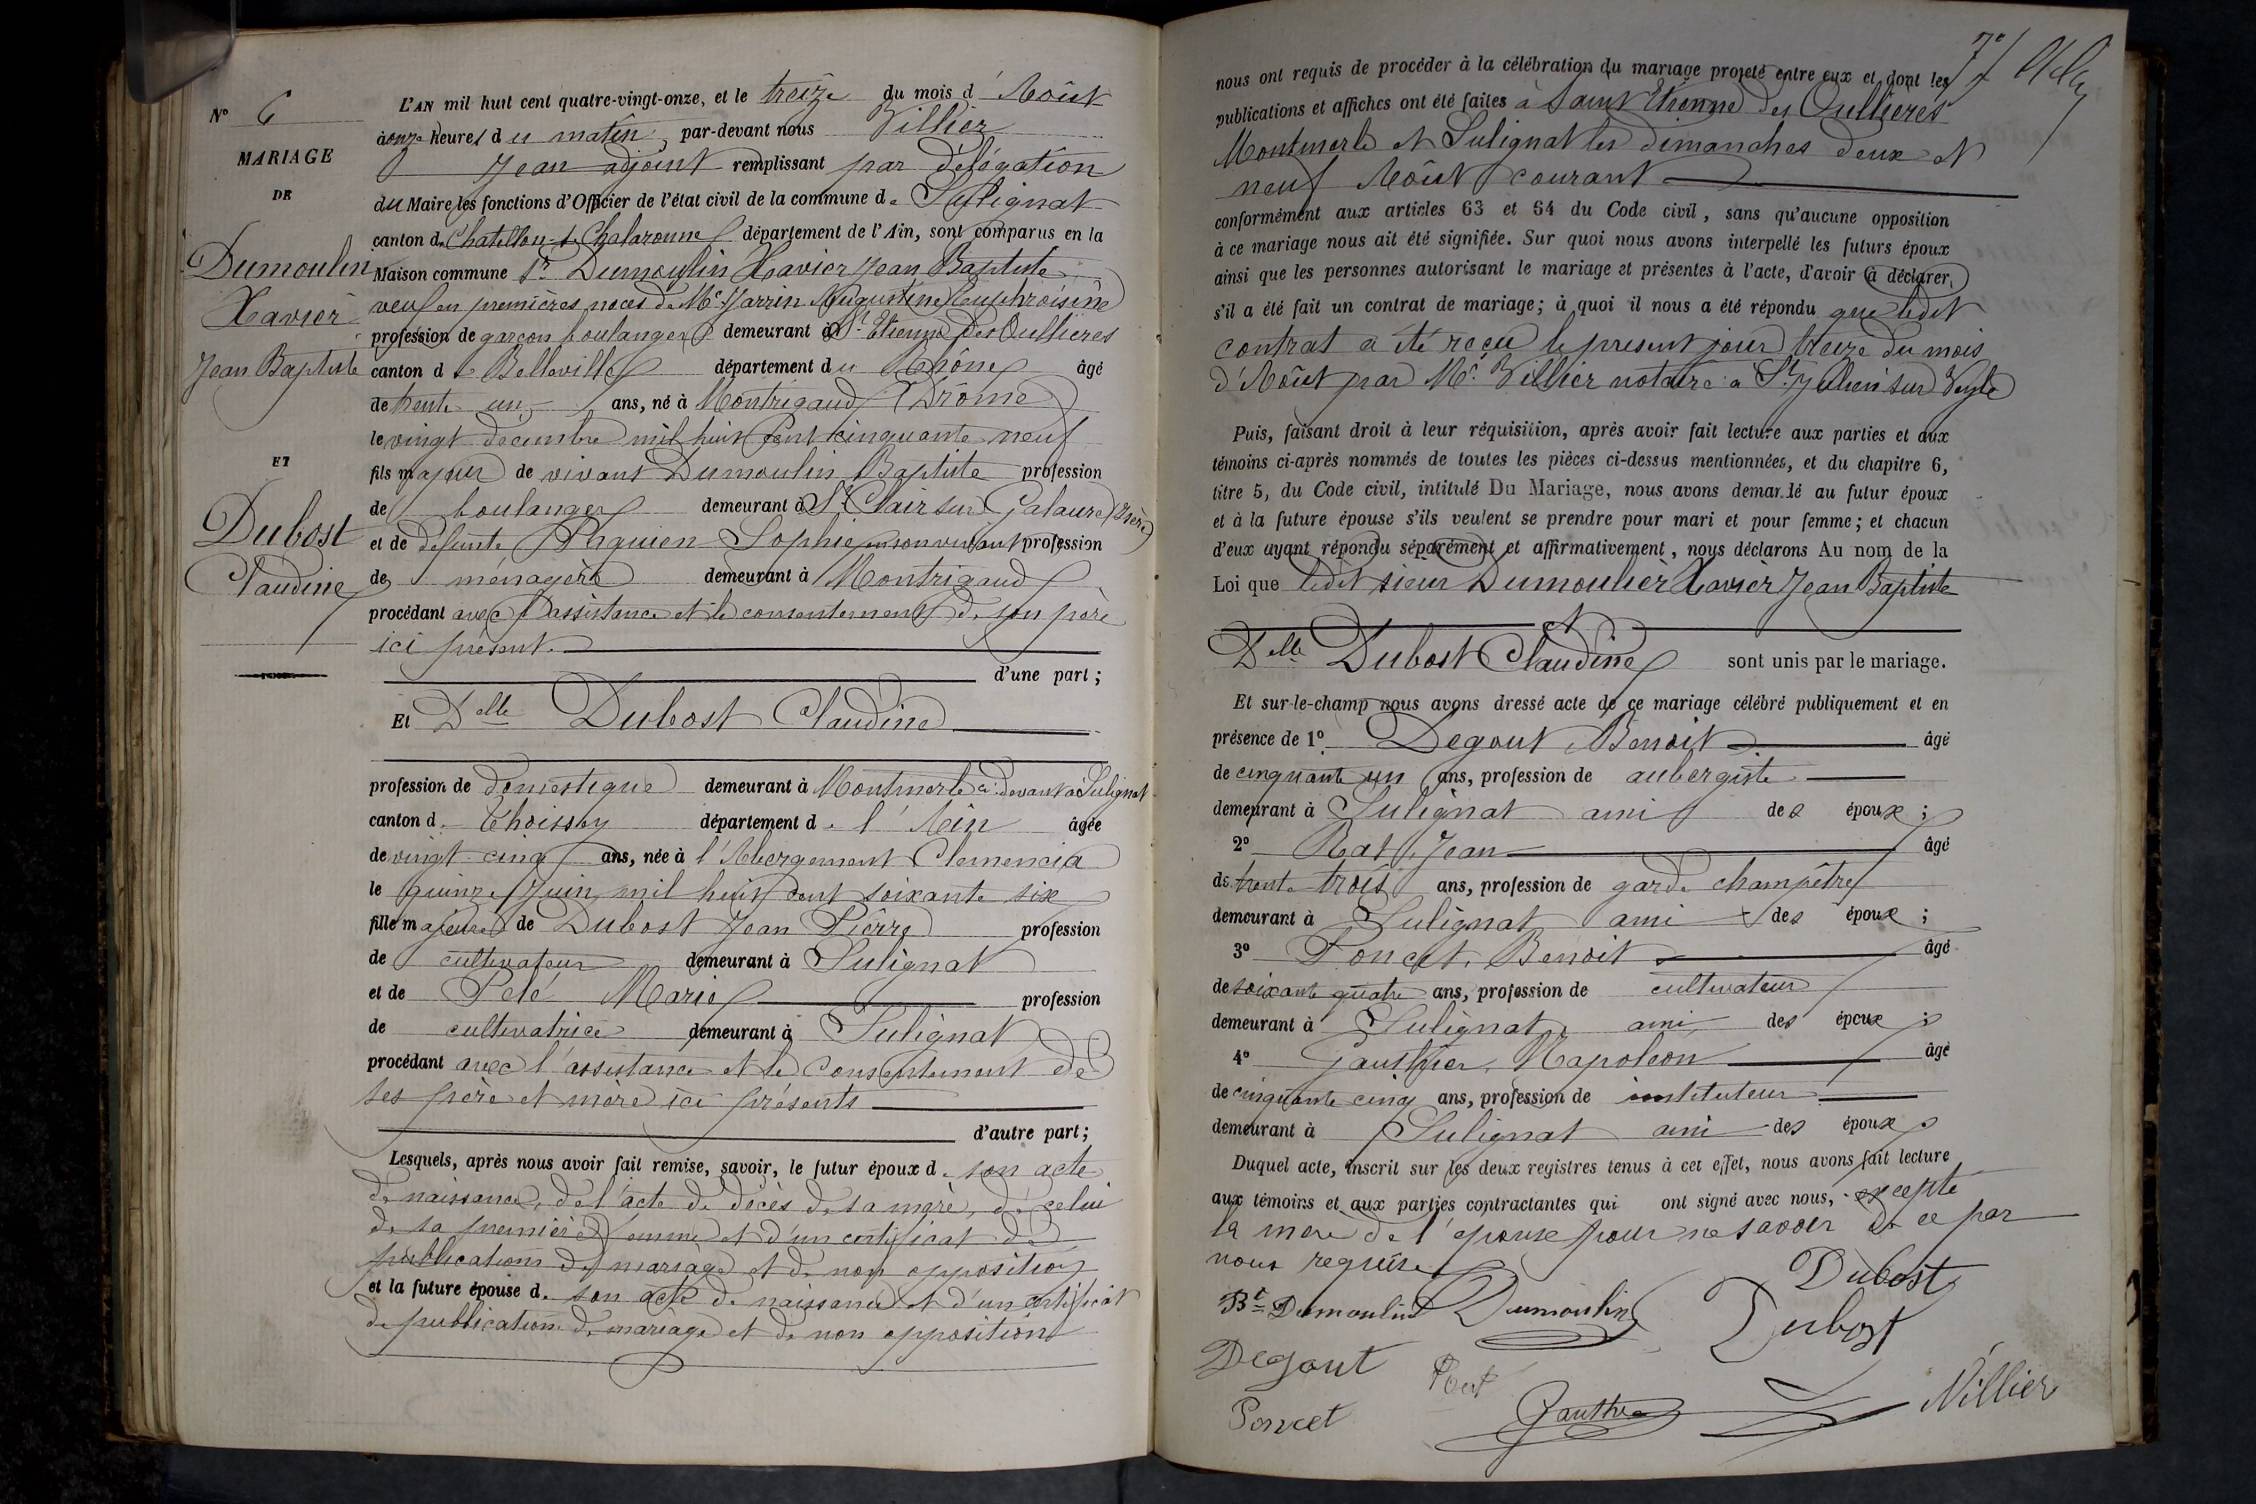 N° 6
MARIAGE
DE
Dumoulin
Xavier
Jean Baptiste
ET
Dubost
Claudine
L'AN mil huit cent quatre-vingt-onze, et le treize du mois d' Août
à onze heures du matin, par-devant nous Villier
Jean adjoint remplissant par délégation
du Maire les fonctions d'Officier de l'état civil de la commune de Sulignat
canton de Chatillon-s-Chalaronne département de l'Ain, sont comparus en la
Maison commune Sr Dumoulin Xavier Jean Baptiste
veuf en premières noces de Me Jarrin Augustine
profession de garçon boulanger demeurant à St Etienne des Oullières
canton de Belleville département du Rhône âgé
de trente un ans, né à Montrigaud Drôme
le vingt décembre mil huit cent cinquante neuf
fils majeur de vivant Dumoulin Baptiste profession
de boulanger demeurant à St Clair sur Galaure (Isère)
et de défunte Paquien Sophie en son vivant profession
de ménagère demeurant à Montrigaud
procédant avec l'assistance et le consentement de son père
ici présent.
d'une part;
Et Delle Dubost Claudine
profession de domestique demeurant à Montmerle ci-devant à Sulignat
canton de Thoissey département de l'Ain âgée
de vingt cinq ans, née à l'Abergement Clemencia
le quinze Juin mil huit cent soixante six
fille majeure de Dubost Jean Pierre profession
de cultivateur demeurant à Sulignat
et de Pelé Marie profession
de cultivatrice demeurant à Sulignat
procédant avec l'assistance et le consentement de
ses père et mère ici présents
d'autre part;
Lesquels, après nous avoir fait remise, savoir, le futur époux de son acte
de naissance, de l'acte de décès de sa mère, de celui
de sa première femme et d'un certificat de
publications de mariage et de non opposition
et la future épouse de son acte de naissance et d'un certificat
de publications de mariage et de non opposition
7e
nous ont requis de procéder à la célébration du mariage projeté entre eux et dont les
publications et affiches ont été faites à Saint Etienne des Oullières
Montmerle et Sulignat les dimanches deux et
neuf Août courant
conformément aux articles 63 et 64 du Code civil, sans qu'aucune opposition
à ce mariage nous ait été signifiée. Sur quoi nous avons interpellé les futurs époux
ainsi que les personnes autorisant le mariage et présentes à l'acte, d'avoir à déclarer
s'il a été fait un contrat de mariage; à quoi il nous a été répondu que ledit
contrat a été reçu le present jour treize du mois
d'Août par Me Villier notaire à St Julien sur Veyle
Puis, faisant droit à leur réquisition, après avoir fait lecture aux parties et aux
témoins ci-après nommés de toutes les pièces ci-dessus mentionnées, et du chapitre 6,
titre 5, du Code civil, intitulé Du Mariage, nous avons demandé au futur époux
et à la future épouse s'ils veulent se prendre pour mari et pour femme; et chacun
d'eux ayant répondu séparément et affirmativement, nous déclarons Au nom de la
Loi que ledit sieur Dumoulier Xavier Jean Baptiste
et
Delle Dubost Claudine sont unis par le mariage.
Et sur-le-champ nous avons dressé acte de ce mariage célébré publiquement et en
présence de 1° Degout Benoit âgé
de cinquante un ans, profession de aubergiste
demeurant à Sulignat ami des époux;
2° Rat Jean âgé
de trente trois ans, profession de garde champêtre
demeurant à Sulignat ami des époux;
3° Poncet Benoit âgé
de soixante quatre ans, profession de cultivateur
demeurant à Sulignat ami des époux;
4° Gauthier Napoleon âgé
de cinquante cinq ans, profession de instituteur
demeurant à Sulignat ami des époux
Duquel acte, inscrit sur les deux registres tenus à cet effet, nous avons fait lecture
aux témoins et aux parties contractantes qui ont signé avec nous, excepté
la mère de l'épouse pour ne savoir de ce par
nous requise
Dubost
Bte Dumoulin Dumoulin
Dubost
Degout Rat
Poncet Gauthier Villier